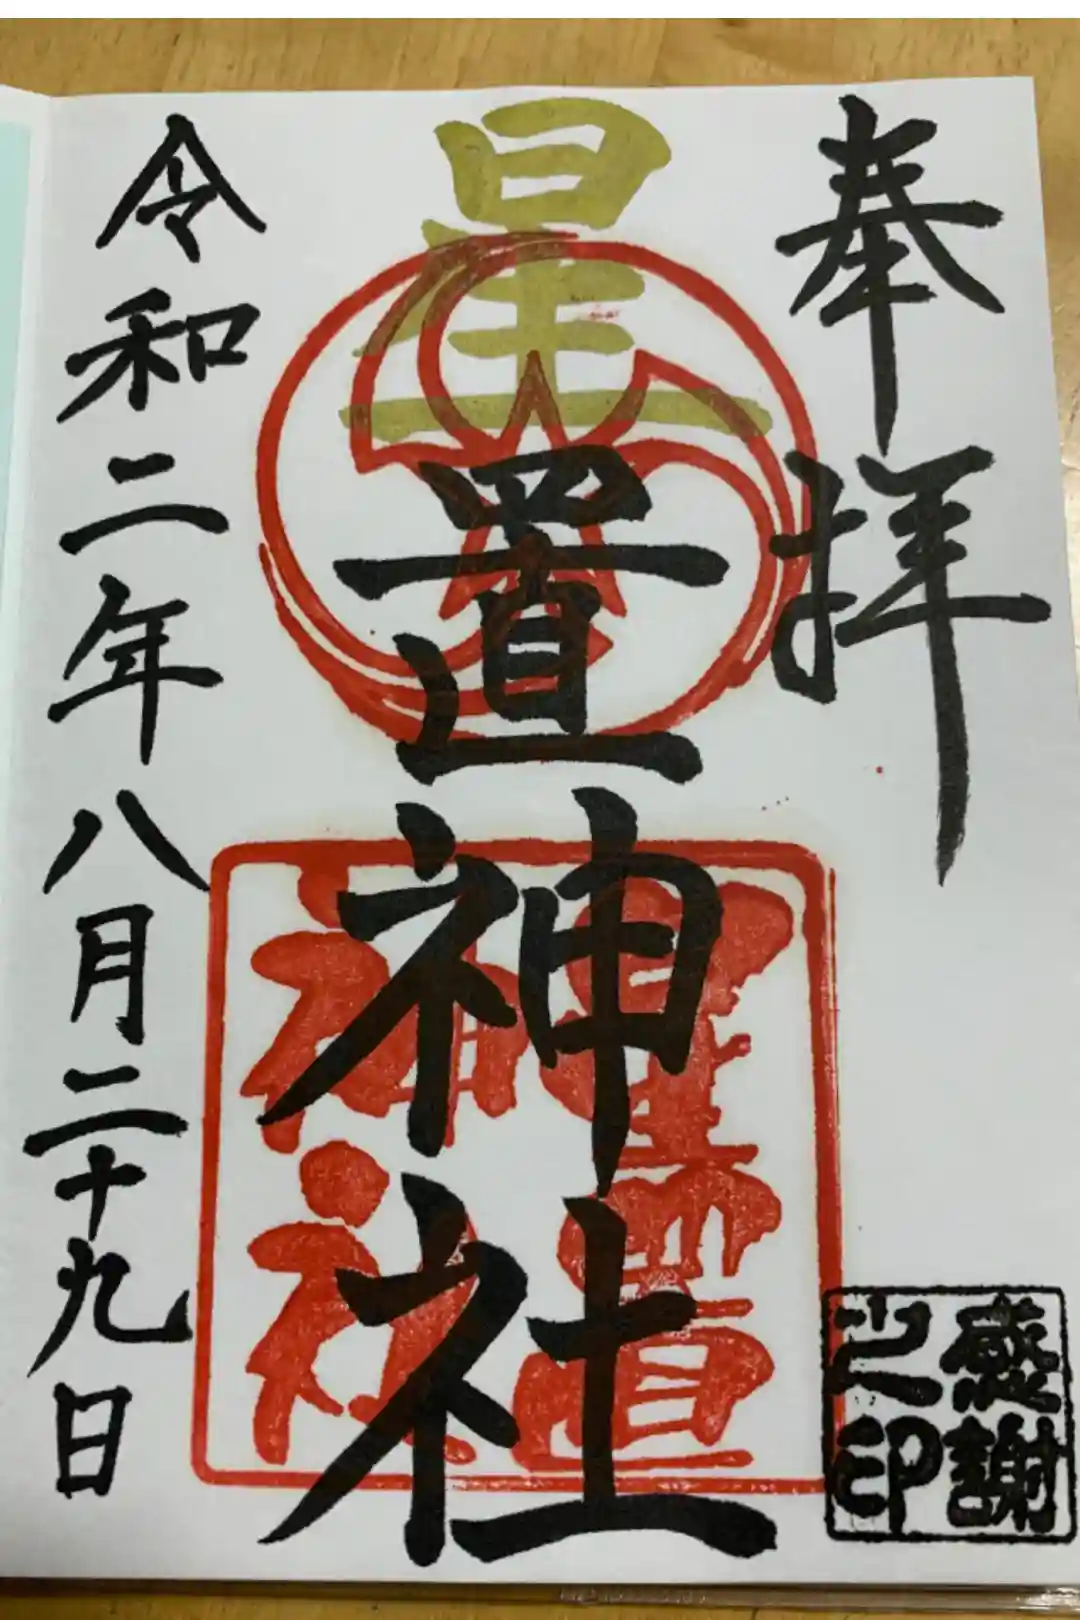 奉拝
星置神社
令和二年八月二十九日
星置
神社
感謝
之印